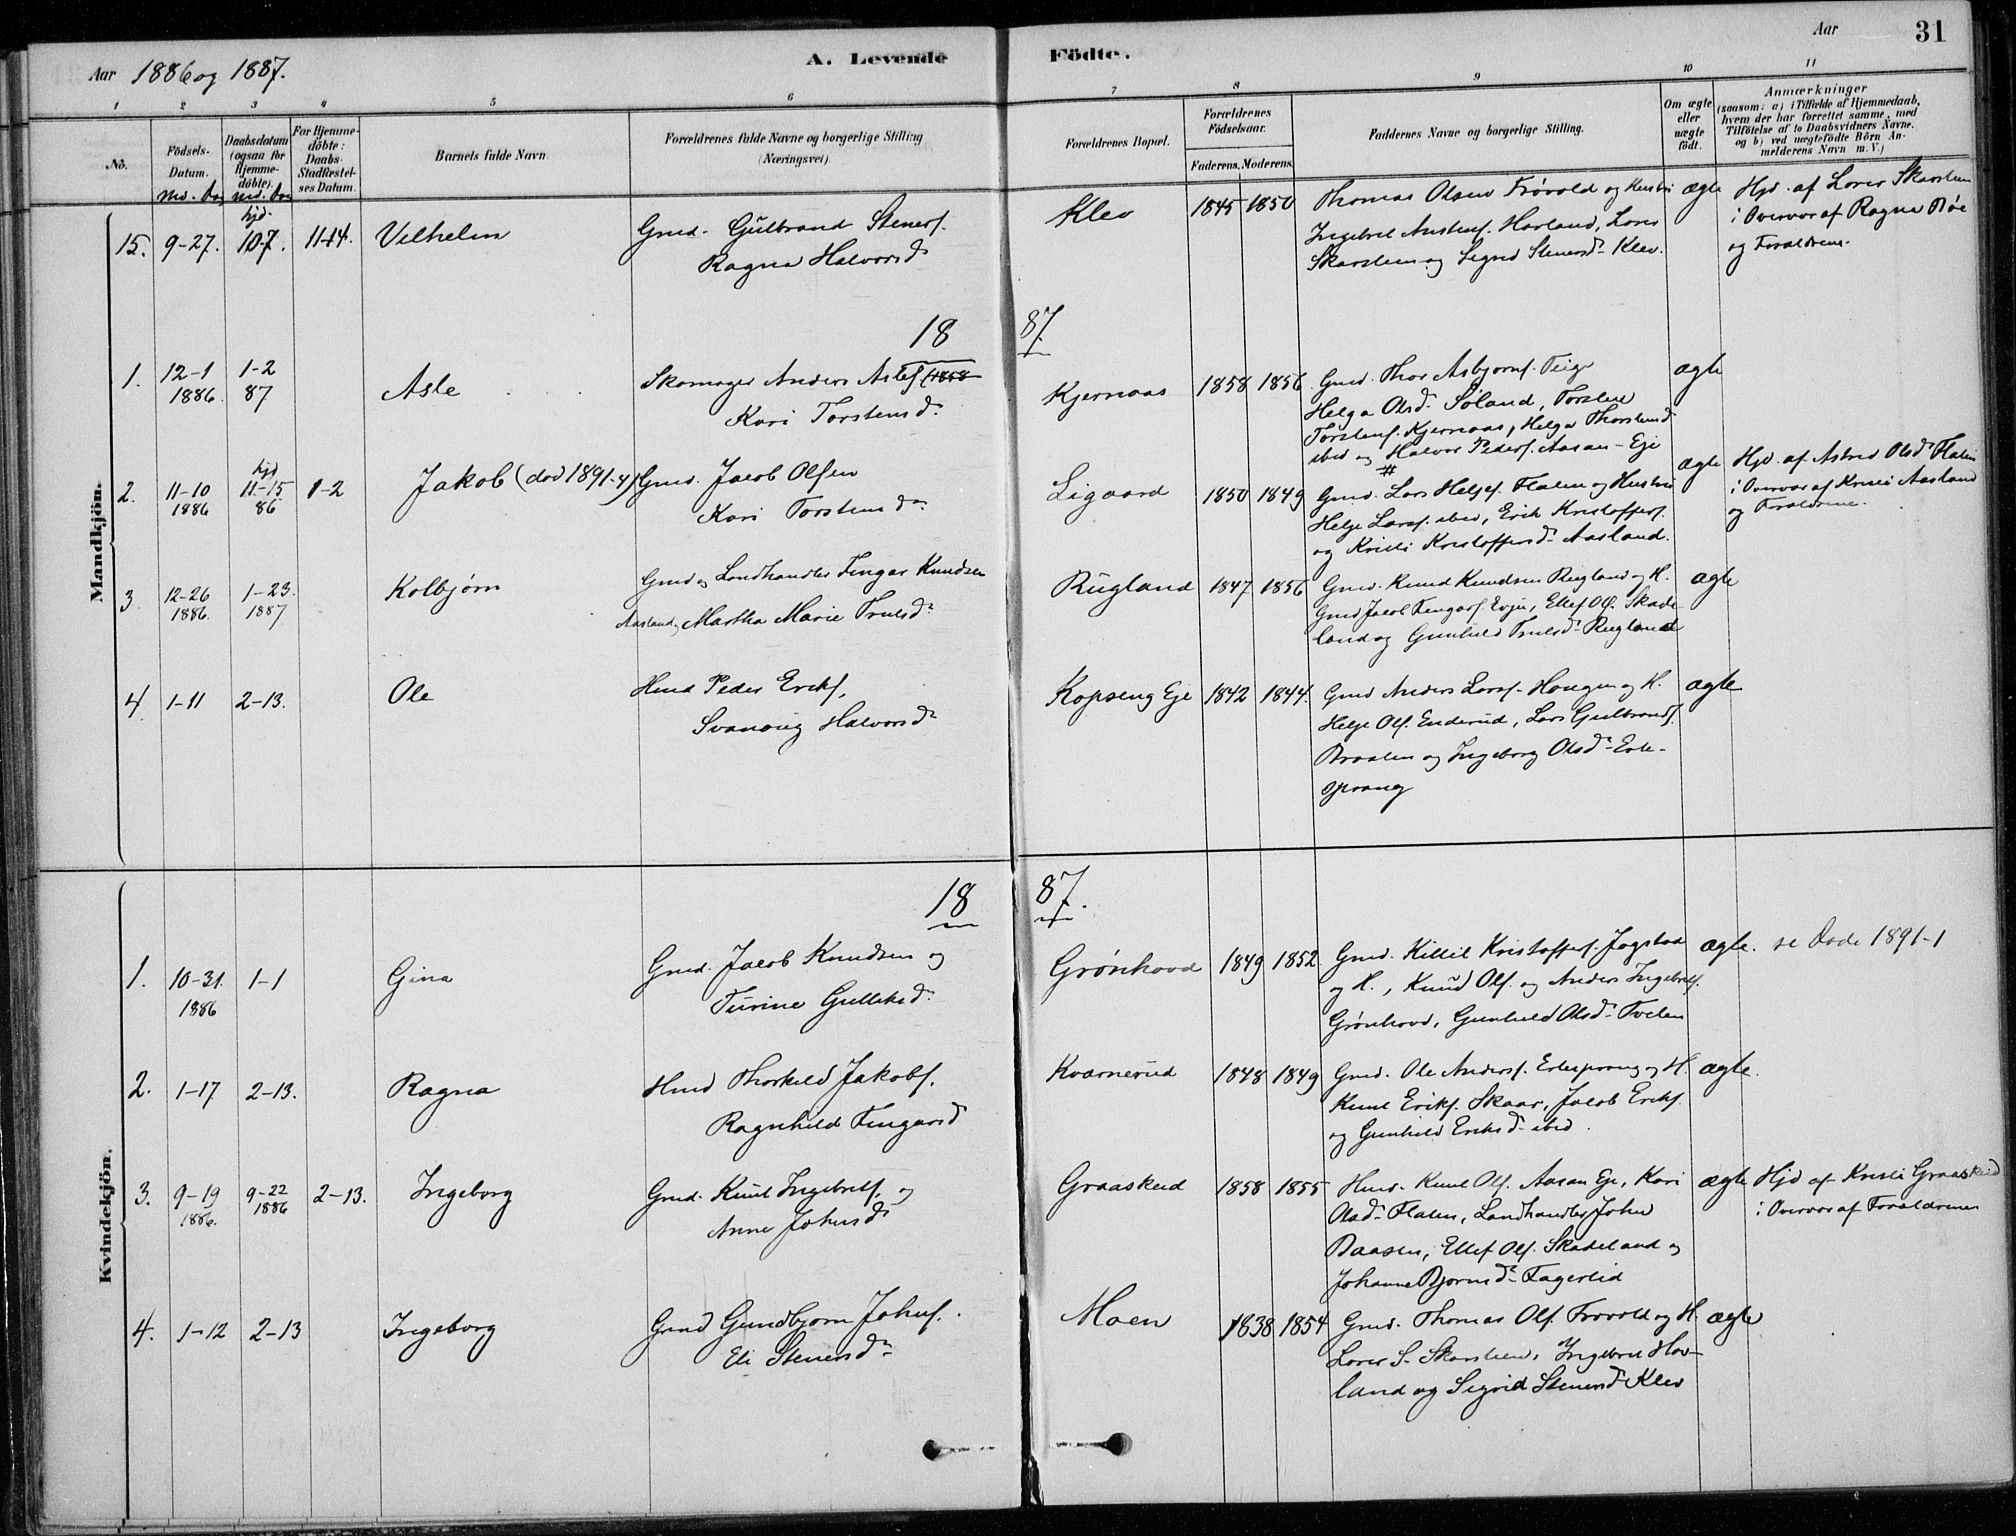 Aar 1886 og 1887.
A. Levende Födte.
Aar 31
1 2 3 4 5 6 7 8 9 10 11
No.
Födsels-Datum.
Md. Dag
Daabsdatum (ogsaa for Hjemme-döbte).
Md. Dag
For Hjemme-döbte: Daabs-Stadfæstel-ses Datum.
Barnets fulde Navn
Forældrenes fulde Navne og borgerlige Stilling (Næringsvei).
Forældrenes Bopæl.
Forældrenes Födselsaar.
Faderens. Moderens.
Faddernes Navne og borgerlige Stilling.
Om ægte eller uægte födt.
Anmærkninger
(saasom: a) i Tilfælde af Hjemmedaab, hvem der har forrettet samme, med Tilföielse af to Daabsvidners Navne, og b) ved uægtefödte Börn Anmelderens Navn m. V.)
Mandkjön.
15. 9-27. hjd. 10-7. 11-14. Vilhelm
Gmd. Gulbrand Stenersf.
Ragna Halvorsd
Klev 1845 1850
Thomas Olsen Frøvold og Hustru
Ingebret Austensf. Hovland, Lars
Skarstein og Sigrid Stenersd. Klev.
ægte
Hjd. af Lover Skarstein
i Overvær af Ragna Bøe
og Forældrene.
18 87.
1. 12-1 1886. 1-2 87 Asle
Skomager Anders Aslef (1858
Kari Torstensd.
Kjernaas 1858 1856
Gmd. Thor Asbjørnf. Teige
Helga Olsd. Søland, Torsten
Torstenf. Kjernaas, Helga Thorstensd
ibid og Halvor Pedersf. Aasan-Eje
ægte
2. 11-10 1886 hjd 11-15 86 1-2 Jakob (død 1891-4)
Gmd. Jacob Olsen
Kari Torstensd.
Ligaard 1850 1849
Gmd. Lars Helgef. Flaten og Hustru
Helge Larsf. ibid, Erik Kristoffersf.
og Kristi Kristoffersd. Aasland.
ægte
Hjd. af Astrid Olsd Flaten
i Overvær af Kristi Aasland
og Forældrene.
3. 12-26 1886. 1-23. 1887 Kolbjørn
Gmd og Landhandler Fingar Knudsen
Aasland, Martha Marie Truelsd.
Rugland 1847 1856
Gmd. Knud Knudsen Rugland og H.
Gmd Jacob Fingarsf. Evju, Ellef Olf. Skade-
land og Gunhild Truelsd. Rugland
ægte
4. 1-11 2-13. Ole
Hmd Peder Eriksf.
Svanaug Halvorsd.
Kopseng Eje 1842 1844.
Gmd Anders Larsf. Haugen og H.
Helge Olf. Enderud, Lars Gulbrandsf.
Braaten og Ingeborg Olsd. Erte-
sprang
ægte
Kvindekjön.
18 87.
1. 10-31. 1886 1-1 Gina
Gmd. Jacob Knudsen og
Turine Gulleksd.
Grønhovd 1849 1852
Gmd. Killil Kristoffersf. Jogstad
og H., Knud Olf. og Anders Ingebretsf.
Grønhovd, Gunhild Olsd. Tveten
ægte. se Døde 1891-1
2. 1-17 2-13. Ragna
Hmd Thorkild Jakobsf.
Ragnhild Fingarsd
Kvarnerud 1848 1849
Gmd. Ole Andersf. Ertesprang og H.
Knut Eriksf. Skaar, Jacob Eriksf.
og Gunhild Eriksd. ibid.
ægte.
3. 9-19 1886. 9-22 1886 2-13. Ingeborg
Gmd. Knut Ingebretsf. og
Anne Johnsd.
Graaskeid 1858 1855
Hmd. Knut Olf. Aasan Eje, Kari
Olsd. Flaten, Landhandler John
Baasen, Ellef Olf. Skadeland og
Johanne Bjørnsd. Fagerlid
ægte
Hjd af Kristi Graaskeid
i Overvær af Forældrene
4. 1-12 2-13 Ingeborg
Gmd Gundbjørn Johnsf.
Eli Stenersd.
Moen 1838 1854
Gmd. Thomas Olf. Frøvold og H.
Lover S. Skarstein, Ingebret Hov-
land og Sigrid Stenersd. Klev
ægte